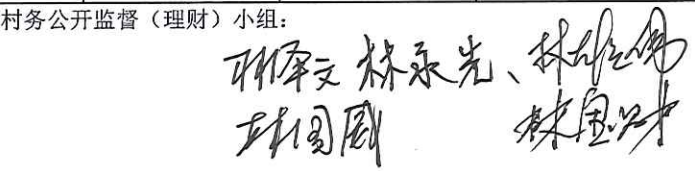 村务公开监督（理财）小组：
林泽文 林永光、林雄伟
林国威